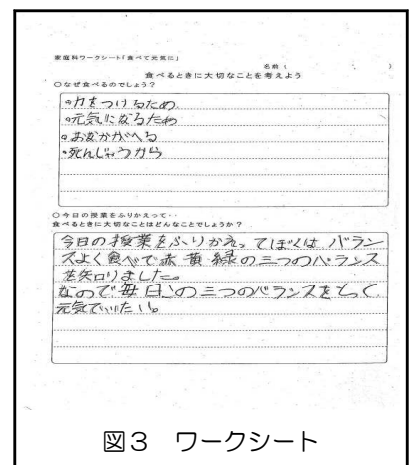 家庭科ワークシート「食べて元気に」
名前（　　　　　）
食べるときに大切なことを考えよう
○なぜ食べるのでしょう？
・力をつけるため
・元気になるため
・おなかがへる
・死んじゃうから
○今日の授業をふりかえって・・
食べるときに大切なことはどんなことでしょうか？
今日の授業をふりかえってぼくは バラン
スよく食べて赤 黄 緑の三つのバランス
を知りました。
なので毎日この三つのバランスをとって
元気でいたい。
図３　ワークシート